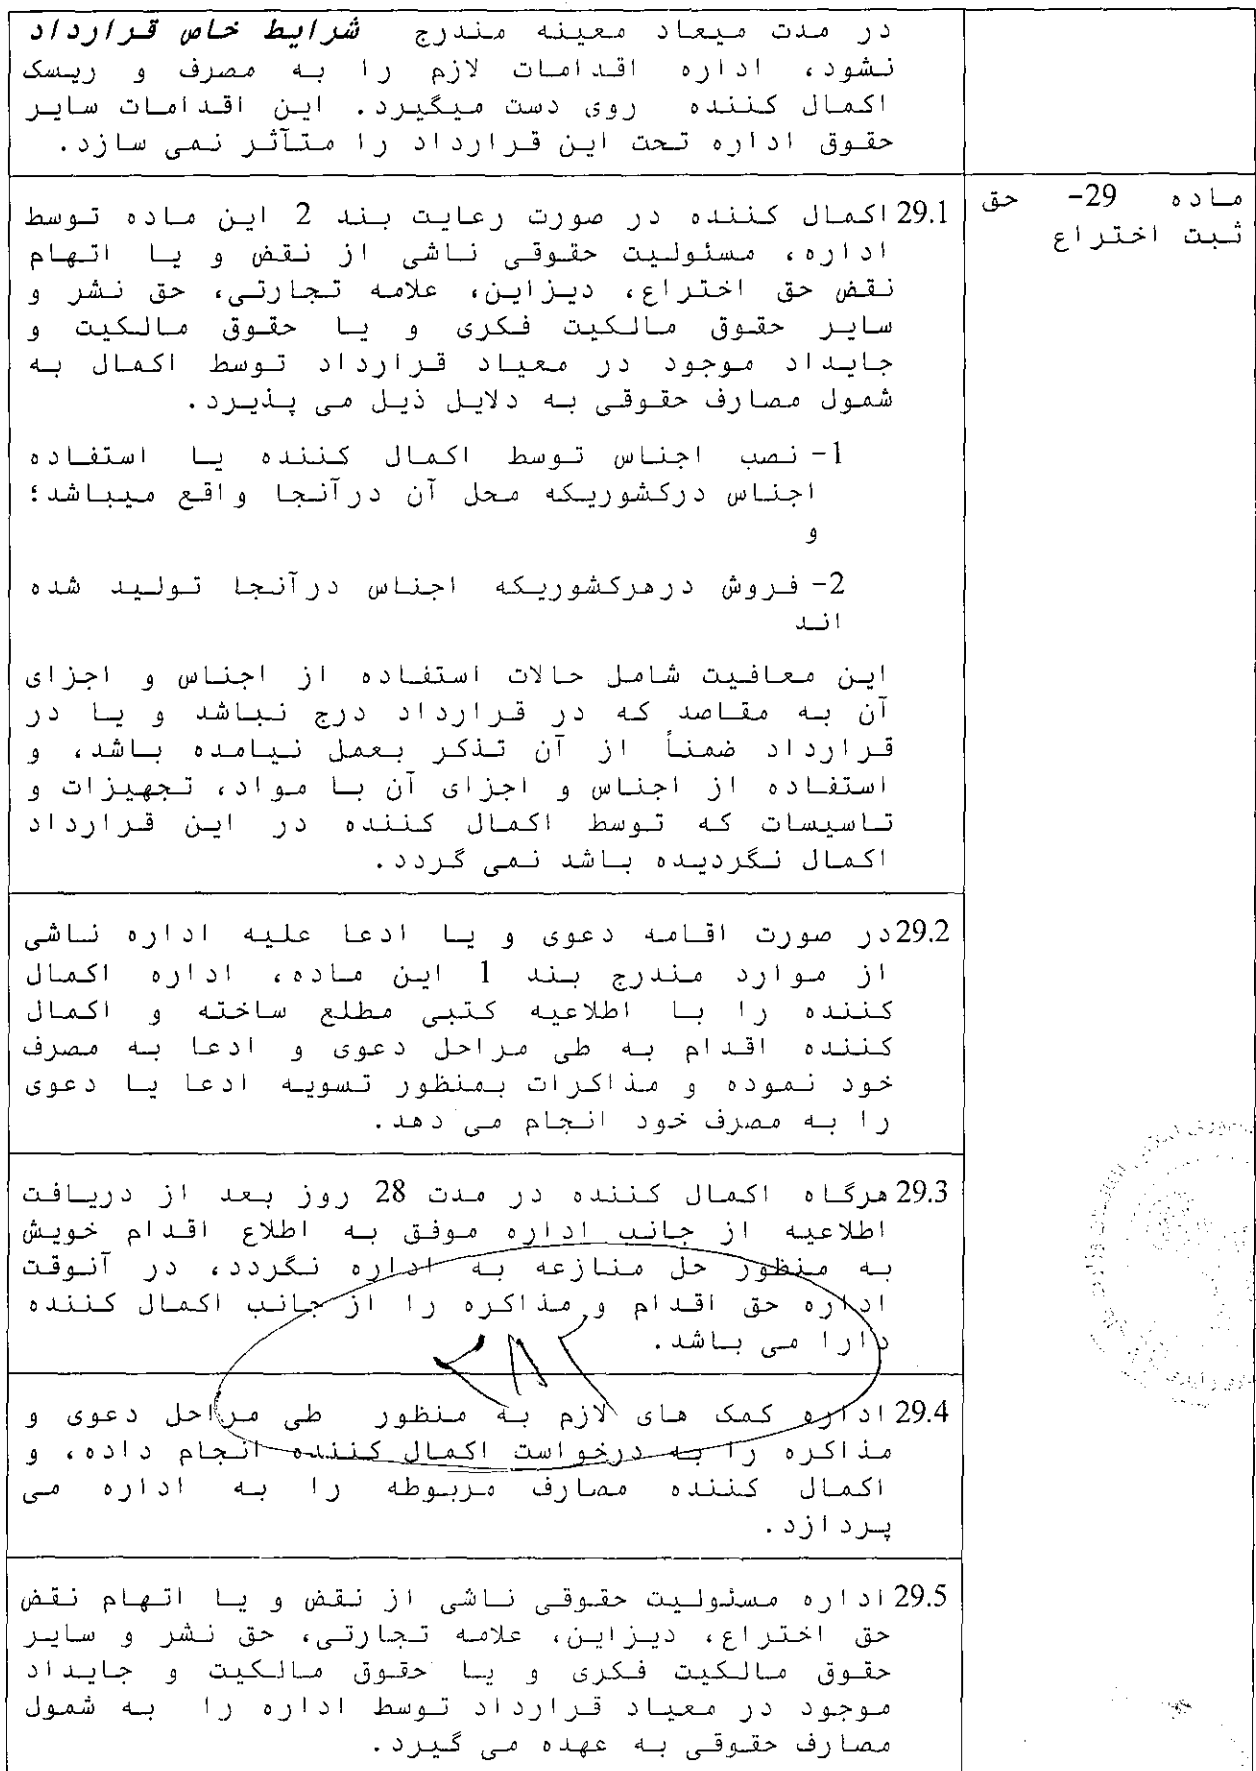 در مدت میعاد معینه مندرج شرایط خاص قرارداد
نشود، اداره اقدامات لازم را به مصرف و ریسک
اکمال کننده روی دست میگیرد. این اقدامات سایر
حقوق اداره تحت این قرارداد را متآثر نمی سازد.
ماده 29- حق
ثبت اختراع
29.1 اکمال کننده در صورت رعایت بند 2 این ماده توسط
اداره، مسئولیت حقوقی ناشی از نقض و یا اتهام
نقض حق اختراع، دیزاین، علامه تجارتی، حق نشر و
سایر حقوق مالکیت فکری و یا حقوق مالکیت و
جایداد موجود در معیاد قرارداد توسط اکمال به
شمول مصارف حقوقی به دلایل ذیل می پذیرد.
1- نصب اجناس توسط اکمال کننده یا استفاده
اجناس درکشوریکه محل آن درآنجا واقع میباشد؛
و
2- فروش درهرکشوریکه اجناس درآنجا تولید شده
اند
این معافیت شامل حالات استفاده از اجناس و اجزای
آن به مقاصد که در قرارداد درج نباشد و یا در
قرارداد ضمناً از آن تذکر بعمل نیامده باشد، و
استفاده از اجناس و اجزای آن با مواد، تجهیزات و
تاسیسات که توسط اکمال کننده در این قرارداد
اکمال نگردیده باشد نمی گردد.
29.2 در صورت اقامه دعوی و یا ادعا علیه اداره ناشی
از موارد مندرج بند 1 این ماده، اداره اکمال
کننده را با اطلاعیه کتبی مطلع ساخته و اکمال
کننده اقدام به طی مراحل دعوی و ادعا به مصرف
خود نموده و مذاکرات بمنظور تسویه ادعا یا دعوی
را به مصرف خود انجام می دهد.
29.3 هرگاه اکمال کننده در مدت 28 روز بعد از دریافت
اطلاعیه از جانب اداره موفق به اطلاع اقدام خویش
به منظور حل منازعه به اداره نگردد، در آنوقت
اداره حق اقدام و مذاکره را از جانب اکمال کننده
دارا می باشد.
29.4 اداره کمک های لازم به منظور طی مراحل دعوی و
مذاکره را به درخواست اکمال کننده انجام داده، و
اکمال کننده مصارف مربوطه را به اداره می
پردازد.
29.5 اداره مسئولیت حقوقی ناشی از نقض و یا اتهام نقض
حق اختراع، دیزاین، علامه تجارتی، حق نشر و سایر
حقوق مالکیت فکری و یا حقوق مالکیت و جایداد
موجود در معیاد قرارداد توسط اداره را به شمول
مصارف حقوقی به عهده می گیرد.